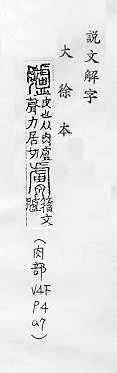 説文解字
大徐本
臚皮也从肉盧
聲力居切膚籒文
臚
(肉部V4下P4a7)